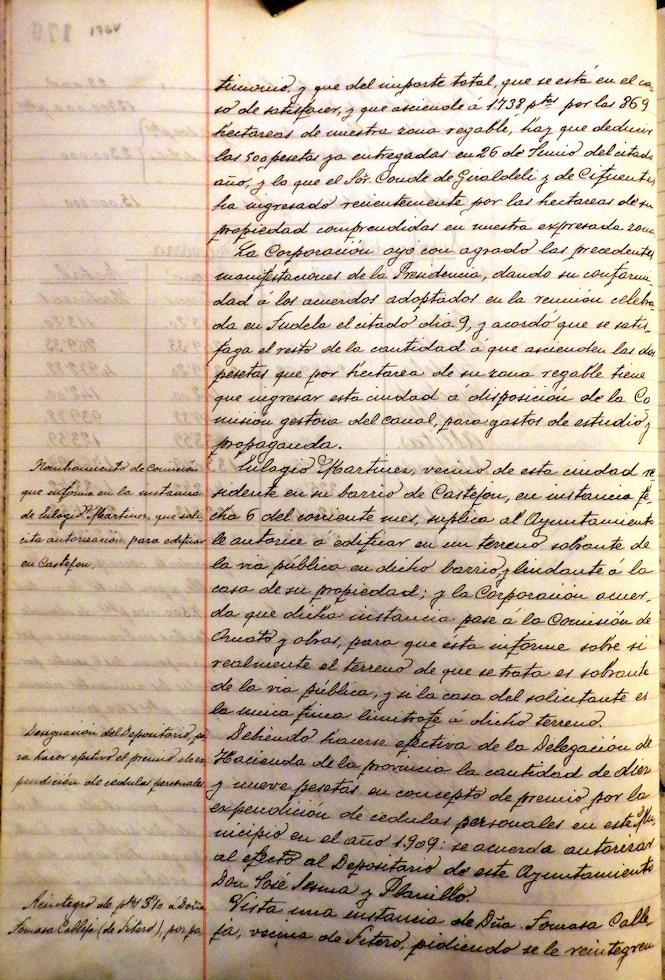 timonio, y que del importe total, que se está en el ca-
so de satisfacer, y que asciende á 1738 ptas por las 869
hectareas de nuestra zona regable, hay que deducir
las 500 pesetas ya entregadas en 26 de Junio del citado
año, y lo que el Sór. Conde de Giraldeli y de Cifuentes
ha ingresado recientemente por las hectareas de su
propiedad comprendidas en nuestra expresada zona
La Corporación oyó con agrado las precedentes
manifestaciones de la Presidencia, dando su conformi-
dad á los acuerdos adoptados en la reunión celebra-
da en Tudela el citado dia 9, y acordó que se satis-
faga el resto de la cantidad á que ascienden las dos
pesetas que por hectarea de su zona regable tiene
que ingresar esta ciudad á disposición de la Co-
misión gestora del canal, para gastos de estudio y
propaganda.
Nombramiento de Comisión
que informe en la instancia
de Eulogio Martinez, que soli-
cita autorización para edificar
en Castejon.
Eulogio Martinez, vecino de esta ciudad re-
sidente en su barrio de Castejon, en instancia fe-
cha 6 del corriente mes, suplica al Ayuntamiento
le autorice á edificar en un terreno sobrante de
la via pública en dicho barrio y lindante á la
casa de su propiedad; y la Corporación acuer-
da que dicha instancia pase á la Comisión de
Ornato y obras, para que ésta informe sobre si
realmente el terreno de que se trata es sobrante
de la via pública, y si la casa del solicitante es
la unica finca limitrofe á dicho terreno.
Designación del Depositario, pa-
ra hacer efectivo el premio de ex-
pendición de cedulas personales
Debiendo hacerse efectiva de la Delegación de
Hacienda de la provincia la cantidad de diez
y nueve pesetas en concepto de premio por la
expendición de cedulas personales en este Mu-
nicipio en el año 1909: se acuerda autorizar
al efecto al Depositario de este Ayuntamiento
Don José Sesma y Planillo.
Reintegro de ptas 5'10 á Doña
Tomasa Calleja (de Fitero), por pa-
Vista una instancia de Dña. Tomasa Calle-
ja, vecina de Fitero, pidiendo se le reintegren